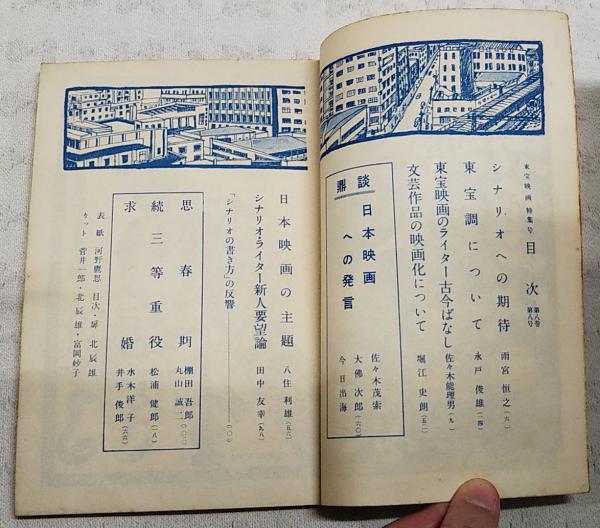 東宝映画特集号
目次
第八巻
第八号
シナリオへの期待 雨宮恒之(六)
東宝調について 永戸俊雄(一四)
東宝映画のライター古今ばなし 佐々木能理男(九)
文芸作品の映画化について 堀江史朗(五二)
鼎談
日本映画への発言
佐々木茂索
大佛次郎
今日出海
日本映画の主題 八住利雄(五六)
シナリオライター新人要望論 田中友幸(九八)
「シナリオの書き方」の反響
思春期 棚田吾郎
丸山誠二
続三等重役 松浦健郎(一八)
求婚 水木洋子
井手俊郎(六六)
表紙 河野鷹思 目次・扉 北辰雄
カット 菅井一郎・北辰雄・富岡妙子